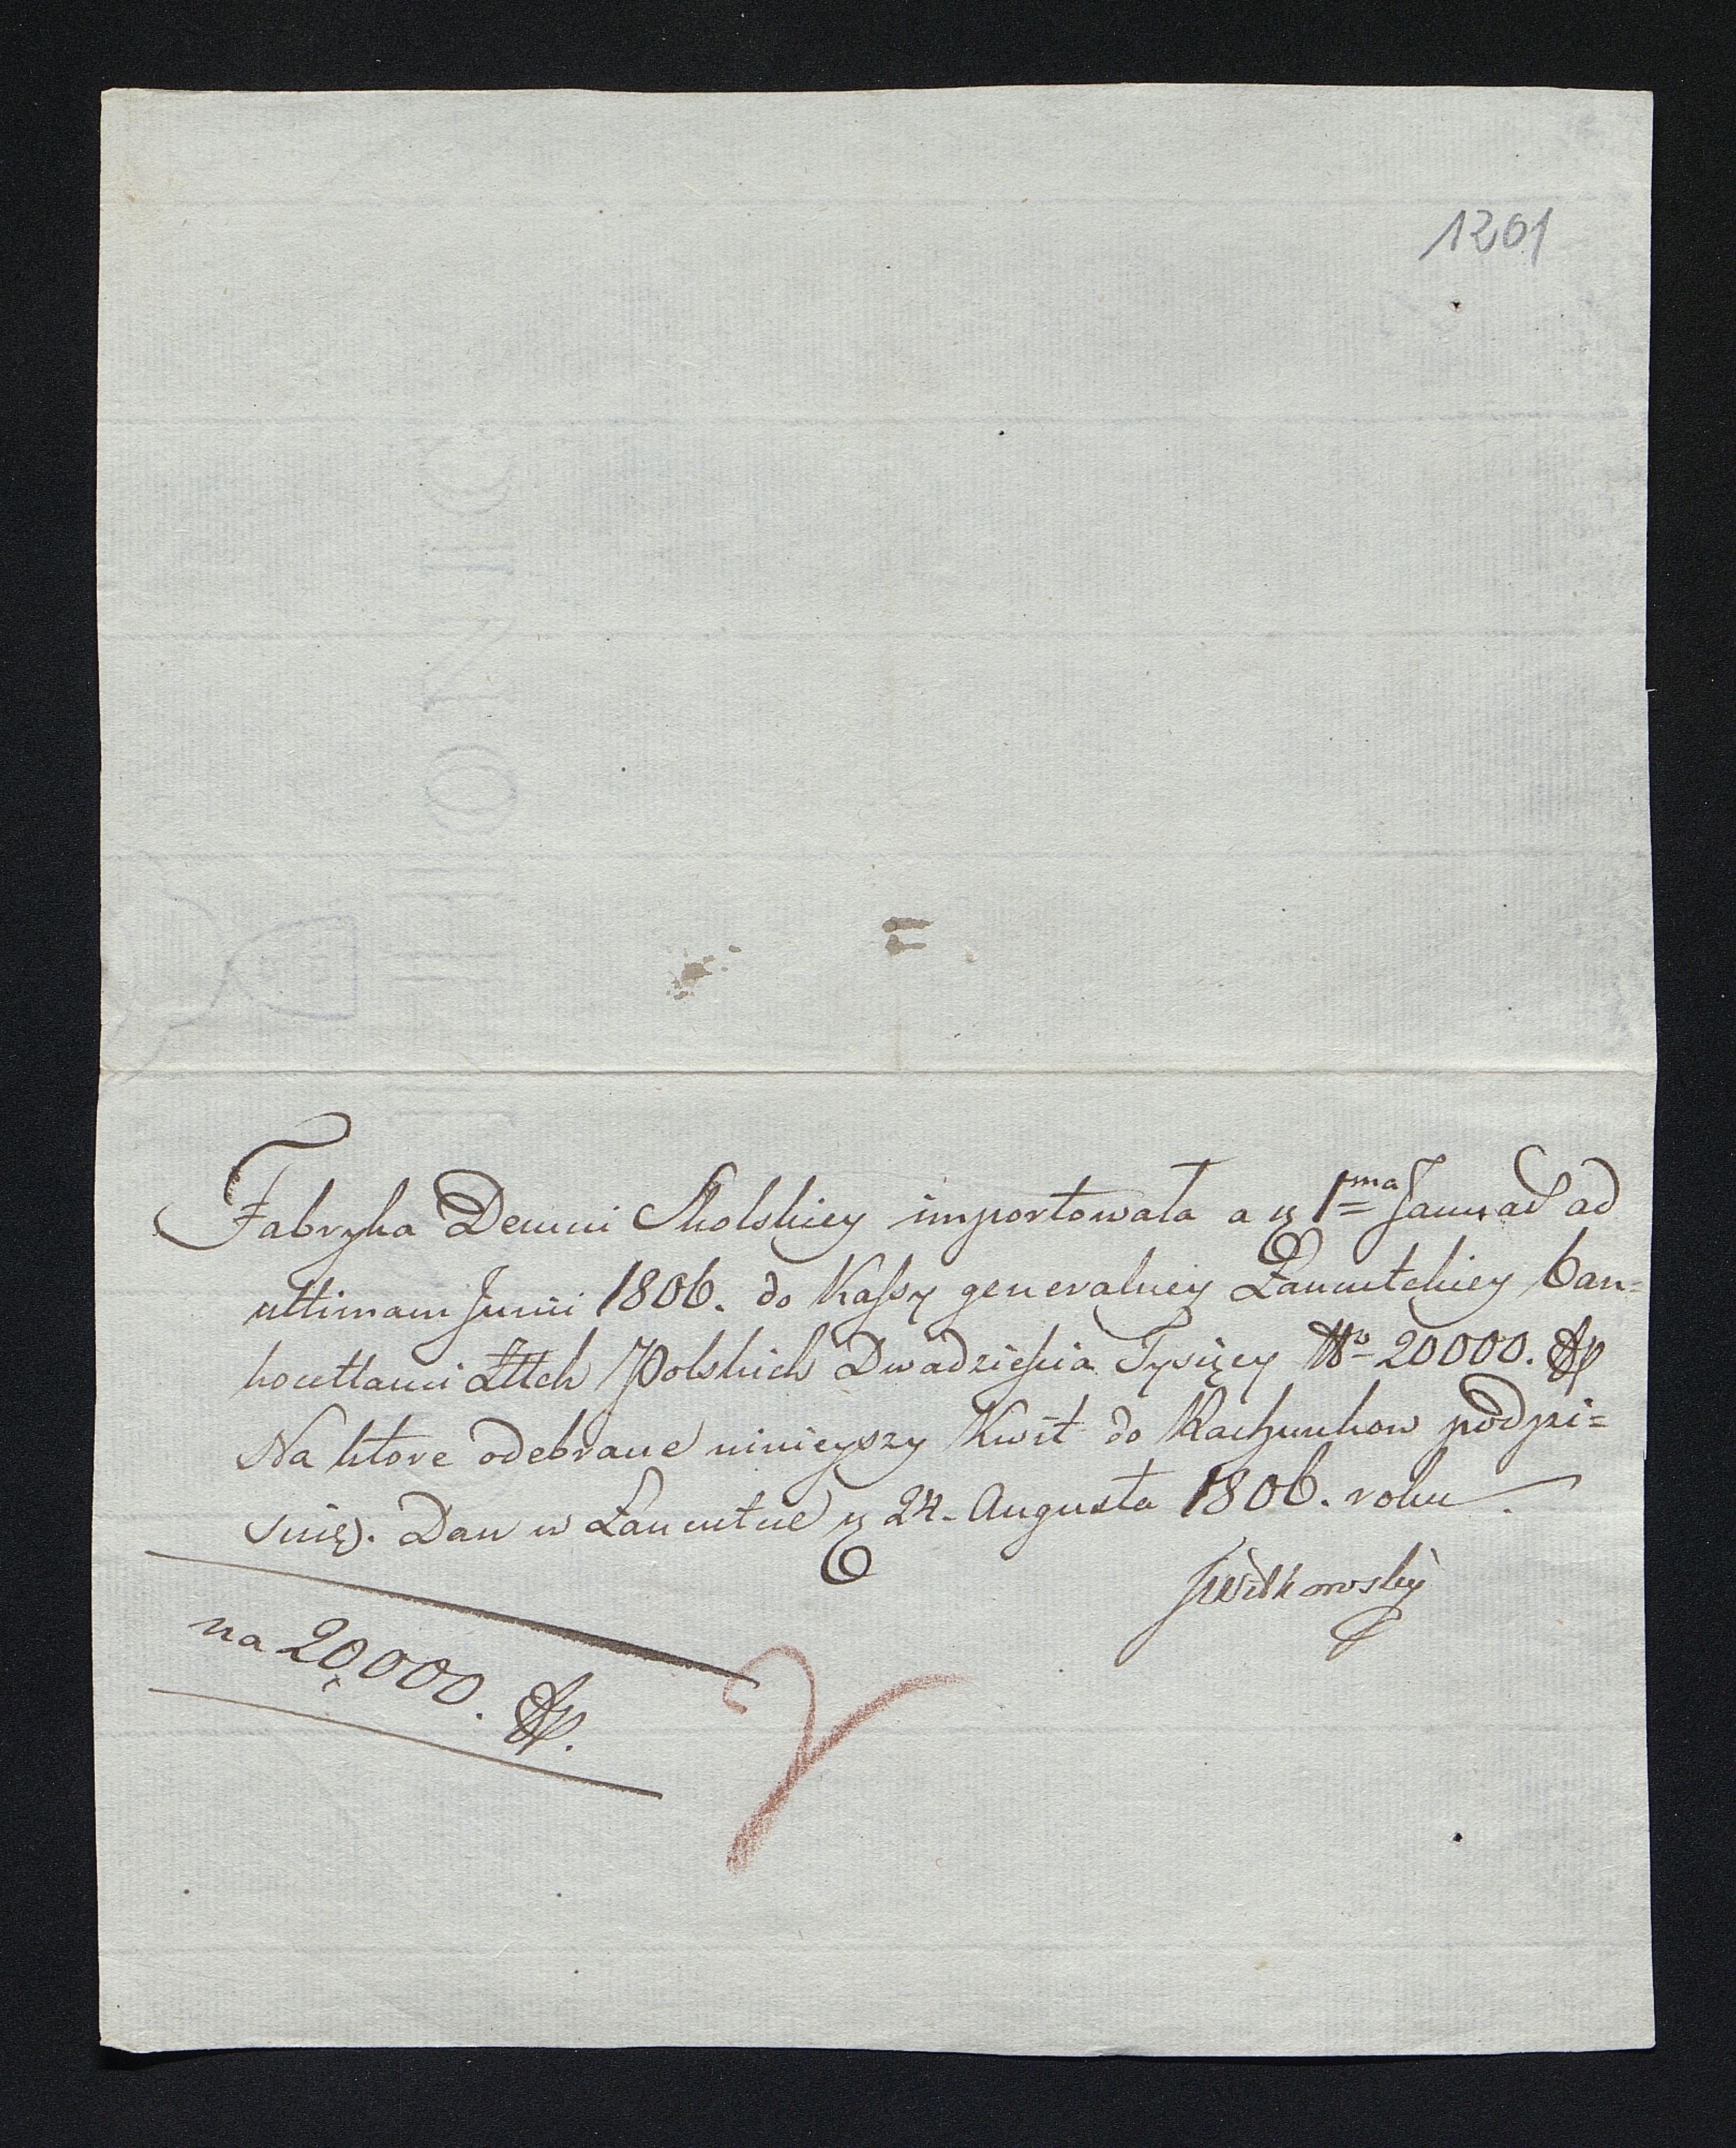 1201
Fabryka Demni Skolskiey importowała a 1ma Januar ad
ultimam Junii 1806. do Kassy generalney Łancutskiey ban=
kocetlami Złtch Polskich Dwadzieścia Tysięcy No 20000.
Na ktore odebrane ninieyszy Kwit do Rachunkow podpi=
suię. Dan w Łancutue 24. Augusta 1806. roku.
JWitkowsky
na 20,000.